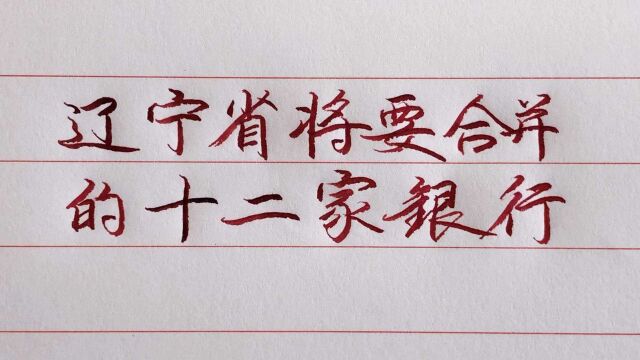 辽宁省将要合并
的十二家銀行